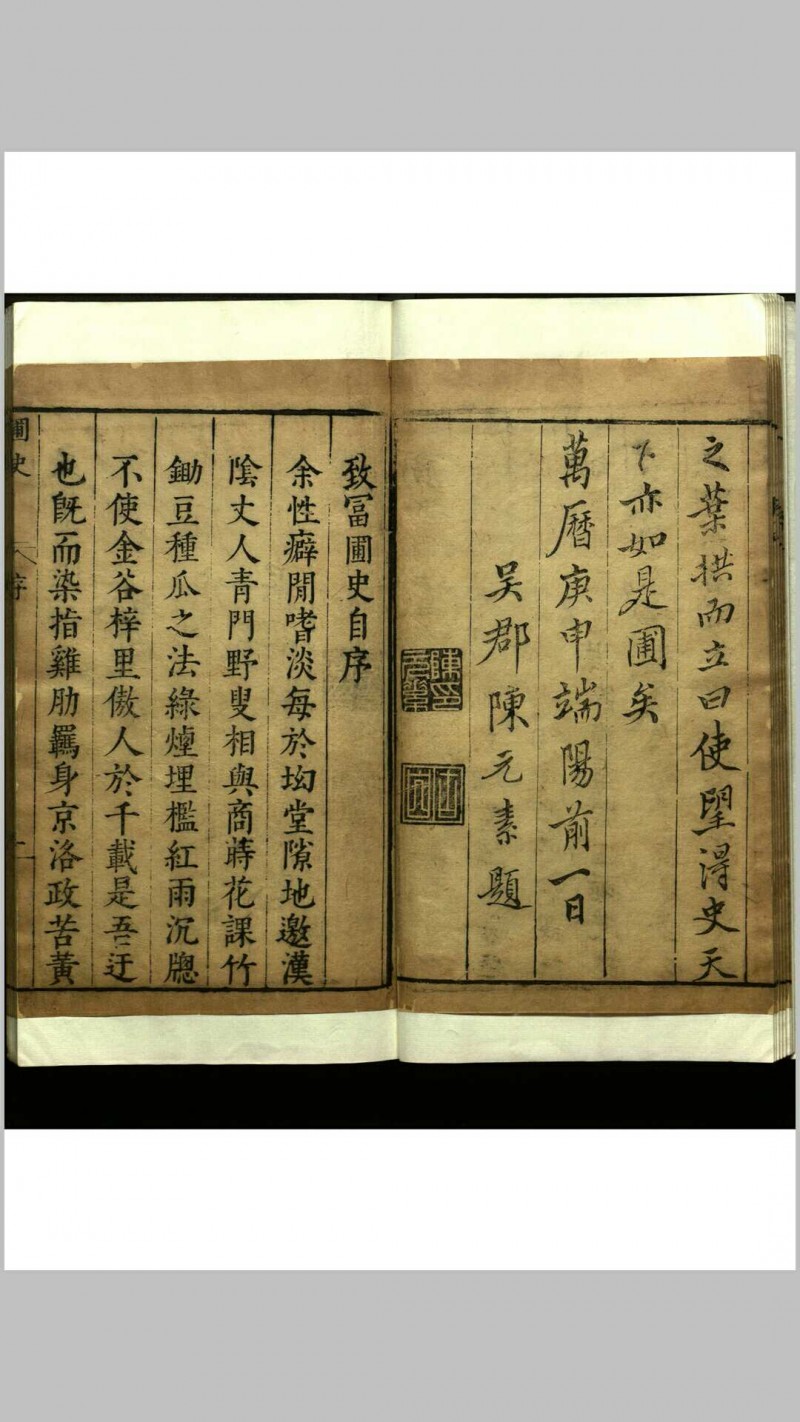 之葉拱而立曰使塱得史天
下亦如是圃矣
萬曆庚申端陽前一日
吳郡陳元素題
致冨圃史自序
余性癖閒嗜淡每於坳堂隙地邀漢
陰丈人青門野叟相與商蒔花課竹
鋤豆種瓜之法綠煙埋檻紅雨沉牕
不使金谷梓里傲人於千載是吾迂
也旣而染指雞肋羈身京洛政苦黃
圃史
序